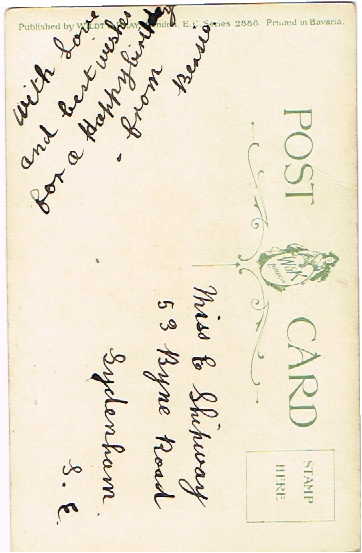 Published by Wildt & Kray, London, E.C. Series 2886. Printed in Bavaria.
POST CARD
W&K
STAMP
HERE
With Love
and best wishes
for a Happy birthday
- from
Bessie
Miss E Shipway
53 Byne Road
Sydenham
S.E.